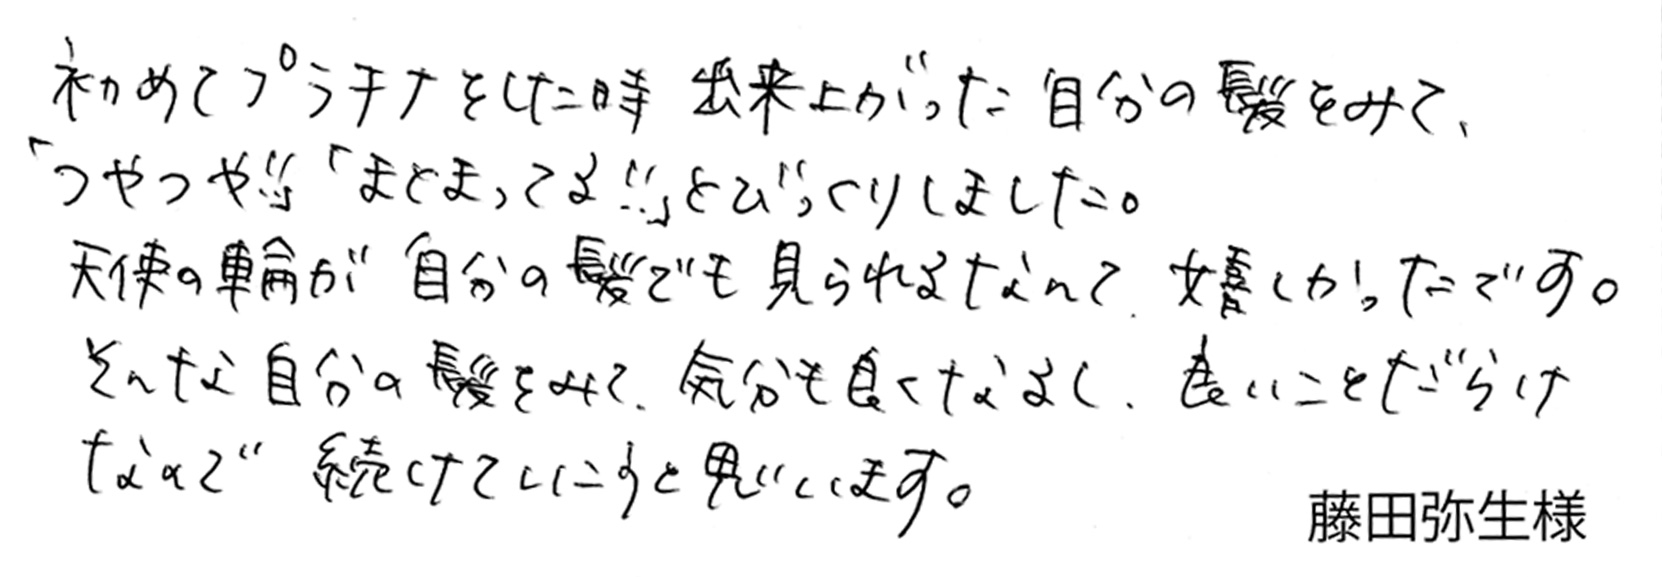 初めてプラチナをした時 出来上がった 自分の髪をみて、
「つやつや!!」「まとまってる!!」とびっくりしました。
天使の輪が 自分の髪でも 見られるなんて、嬉しかったです。
そんな 自分の髪をみて、気分も良くなるし、良いことだらけ
なので 続けていこうと思います。
藤田弥生様